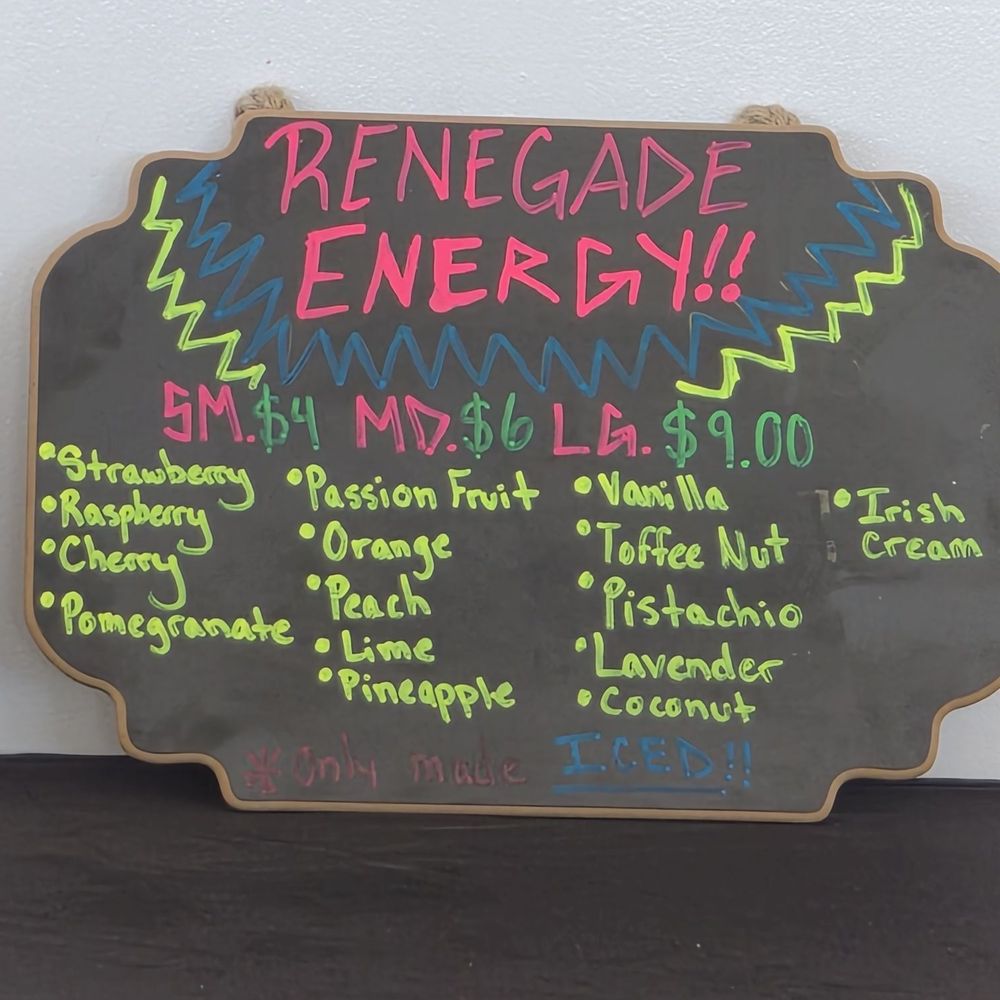 RENEGADE
ENERGY!!
SM. $4 MD. $6 LG. $9.00
•Strawberry
•Raspberry
•Cherry
•Pomegranate
•Passion Fruit
•Orange
•Peach
•Lime
•Pineapple
•Vanilla
•Toffee Nut
•Pistachio
•Lavender
•Coconut
•Irish
Cream
*Only made ICED!!